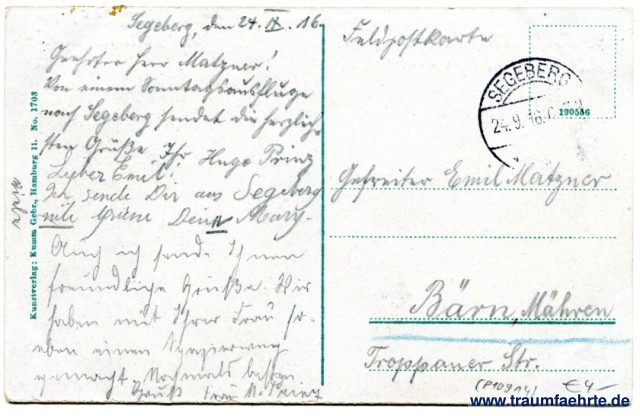 Segeberg, den 24. IX. 16.
Geehrter Herr Matzner!
Von einem Sonntagsausfluge
nach Segeberg sendet die herzlich-
sten Grüße Ihr Hugo Prinz
Lyber Emil!
sende Dir aus Segeberg
file Grüse Deine Mary.
Auch ich sende Ihnen
freundliche Grüße. Wir
haben mit Ihrer Frau so-
eben einen Spaziergang
gemacht. Nochmals besten
Gruß Frau M. Prinz
Kunstverlag: Kumm Gebr., Hamburg 11. No. 1703
Feldpostkarte
190556
SEGEBERG
24.9.16.
Gefreiter Emil Matzner
Bärn, Mähren
Troppauer Str.
(P10914)
€ 4-
www.traumfaehrte.de